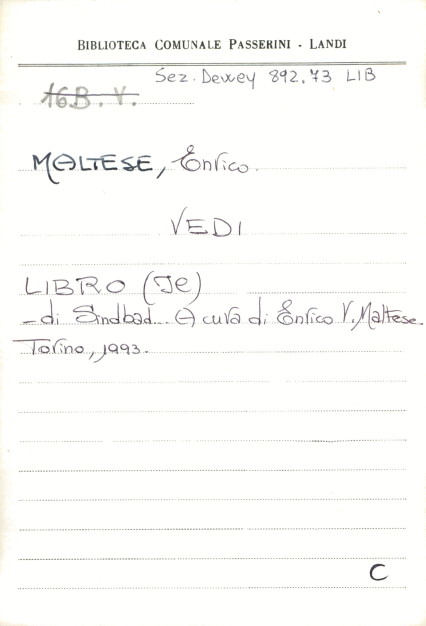 BIBLIOTECA COMUNALE PASSERINI - LANDI
Sez. Dewey 892.73 LIB
16.B.V.
MALTESE, Enrico.
VEDI
LIBRO (Ie)
- di Sindbad... A cura di Enrico V. Maltese.
Torino, 1993.
C